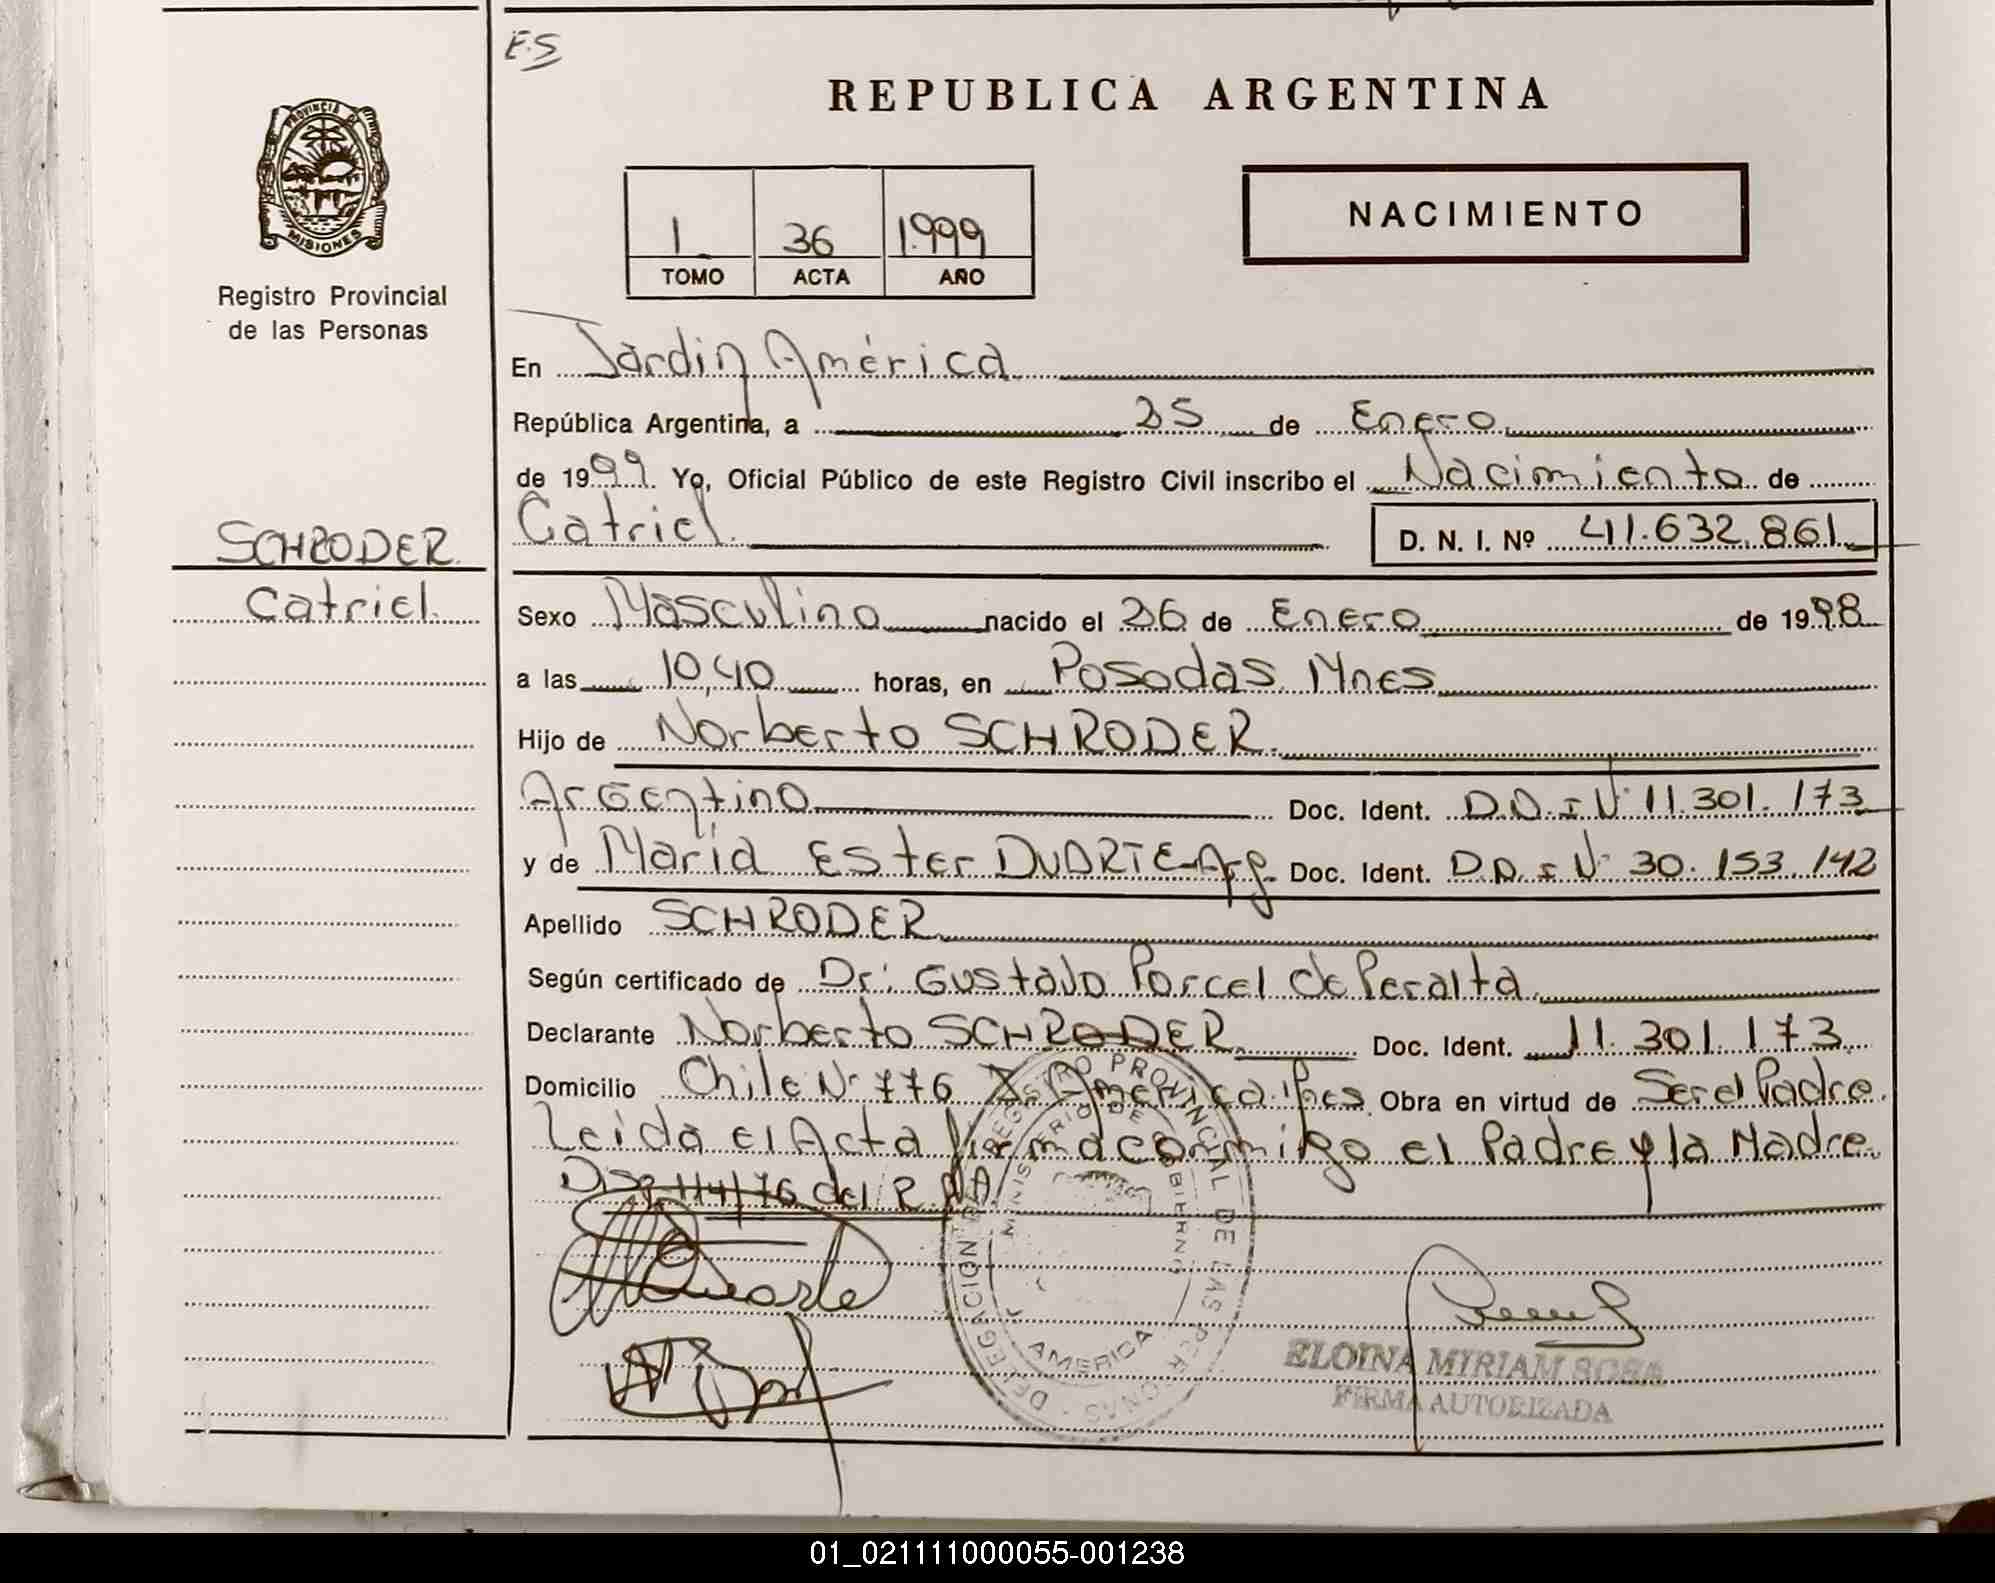 E.S
REPUBLICA ARGENTINA
PROVINCIA DE
MISIONES
Registro Provincial
de las Personas
1 36 1.999
TOMO ACTA AÑO
NACIMIENTO
En Jardin América
República Argentina, a 25 de Enero
de 1999 Yo, Oficial Público de este Registro Civil inscribo el Nacimiento de
Catriel D. N. I. Nº 41.632.861
SCHRODER
Catriel
Sexo Masculino nacido el 26 de Enero de 1998
a las 10,40 horas, en Posadas Mnes
Hijo de Norberto SCHRODER
Argentino Doc. Ident. D.N.I Nº 11.301.173
y de María Ester DUARTE-Arg. Doc. Ident. D.N.I Nº 30.153.142
Apellido SCHRODER
Según certificado de Dr: Gustavo Porcel de Peralta
Declarante Norberto SCHRODER Doc. Ident. 11.301.173
Domicilio Chile Nº 776 J. America. Mnes Obra en virtud de Ser el Padre
Leida el Acta firma conmigo el Padre y la Madre
Disp 114/76 del R.
DELEGACION REGISTRO PROVINCIAL DE LAS PERSONAS
MINISTERIO DE GOBIERNO
AMERICA
ELOINA MIRIAM SOSA
FIRMA AUTORIZADA
01_021111000055-001238